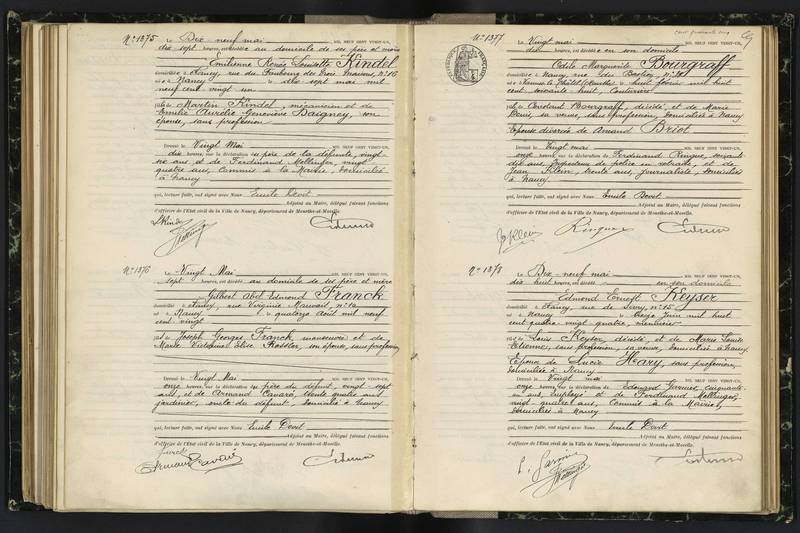 N° 1375 Le Dix neuf mai MIL NEUF CENT VINGT-UN,
dix sept heures, est décédée au domicile de ses père et mère
Emilienne Renée Louisette Kindel
domiciliée à Nancy, rue du Faubourg des Trois Maisons, N° 16
née à Nancy le dix sept mai mil
neuf cent vingt un
fille de Martin Kindel, mécanicien et de
Emilie Aurélie Geneviève Daigney, son
épouse, sans profession
Dressé le Vingt Mai MIL NEUF CENT VINGT-UN,
dix heures, sur la déclaration du père de la défunte, vingt
ans, et de Ferdinand Mellinger, vingt
quatre ans, Commis à la Mairie, domiciliés
à Nancy
qui, lecture faite, ont signé avec Nous Emile Dovot
Adjoint au Maire, délégué faisant fonctions
d'officier de l'État civil de la Ville de Nancy, département de Meurthe-et-Moselle.
N° 1376 Le Vingt Mai MIL NEUF CENT VINGT-UN,
sept heures, est décédé au domicile de ses père et mère
Gilbert Abel Edmond Franck
domicilié à Nancy, rue Virginie Mauvais, n°
né à Nancy le quatorze Août mil neuf
cent vingt
fils de Joseph Georges Franck manoeuvre et de
Marie Elise son épouse, sans profession
Dressé le Vingt Mai MIL NEUF CENT VINGT-UN,
onze heures, sur la déclaration du père du défunt, vingt sept
ans, et de Armand Cavaré, trente quatre ans
jardinier, oncle du défunt, domiciliés à Nancy
qui, lecture faite, ont signé avec Nous Emile Dovot
Adjoint au Maire, délégué faisant fonctions
d'officier de l'État civil de la Ville de Nancy, département de Meurthe-et-Moselle.
N° 1377 Le Vingt mai MIL NEUF CENT VINGT-UN,
heures, est décédée en son domicile
Odile Marguerite Bourgraff
domiciliée à Nancy, rue du Bastion, n°
née à le février mil huit
cent soixante huit, Couturière
fille de Constant Bourgraff, décédé, et de Marie
Denis, sa veuve, sans profession, domiciliée à Nancy
Epouse divorcée de Amand Briot
Dressé le Vingt mai MIL NEUF CENT VINGT-UN,
onze heures, sur la déclaration de Ferdinand Ringue, soixante
dix ans, Inspecteur de police retraité, et de
Jean Klein, trente ans, journaliste, domiciliés
à Nancy
qui, lecture faite, ont signé avec Nous Emile Dovot
Adjoint au Maire, délégué faisant fonctions
d'officier de l'État civil de la Ville de Nancy, département de Meurthe-et-Moselle.
N° 1378 Le Dix neuf mai MIL NEUF CENT VINGT-UN,
dix huit heures, est décédé en son domicile
Edmond Ernest Keyser
domicilié à Nancy, rue de n° 15
né à Nancy le treize Juin mil huit
cent quatre vingt quatre,
fils de Louis Keyser, décédé, et de Marie Louise
Etienne, sans profession, sa veuve, domiciliée à Nancy.
Epoux de Lucie Heary, sans profession,
domiciliée à Nancy
Dressé le Vingt mai MIL NEUF CENT VINGT-UN,
onze heures, sur la déclaration de Edouard Garnier, cinquante
ans, employé et de Ferdinand Mellinger,
vingt quatre ans, Commis à la Mairie,
domiciliés à Nancy
qui, lecture faite, ont signé avec Nous Emile Dovot
Adjoint au Maire, délégué faisant fonctions
d'officier de l'État civil de la Ville de Nancy, département de Meurthe-et-Moselle.